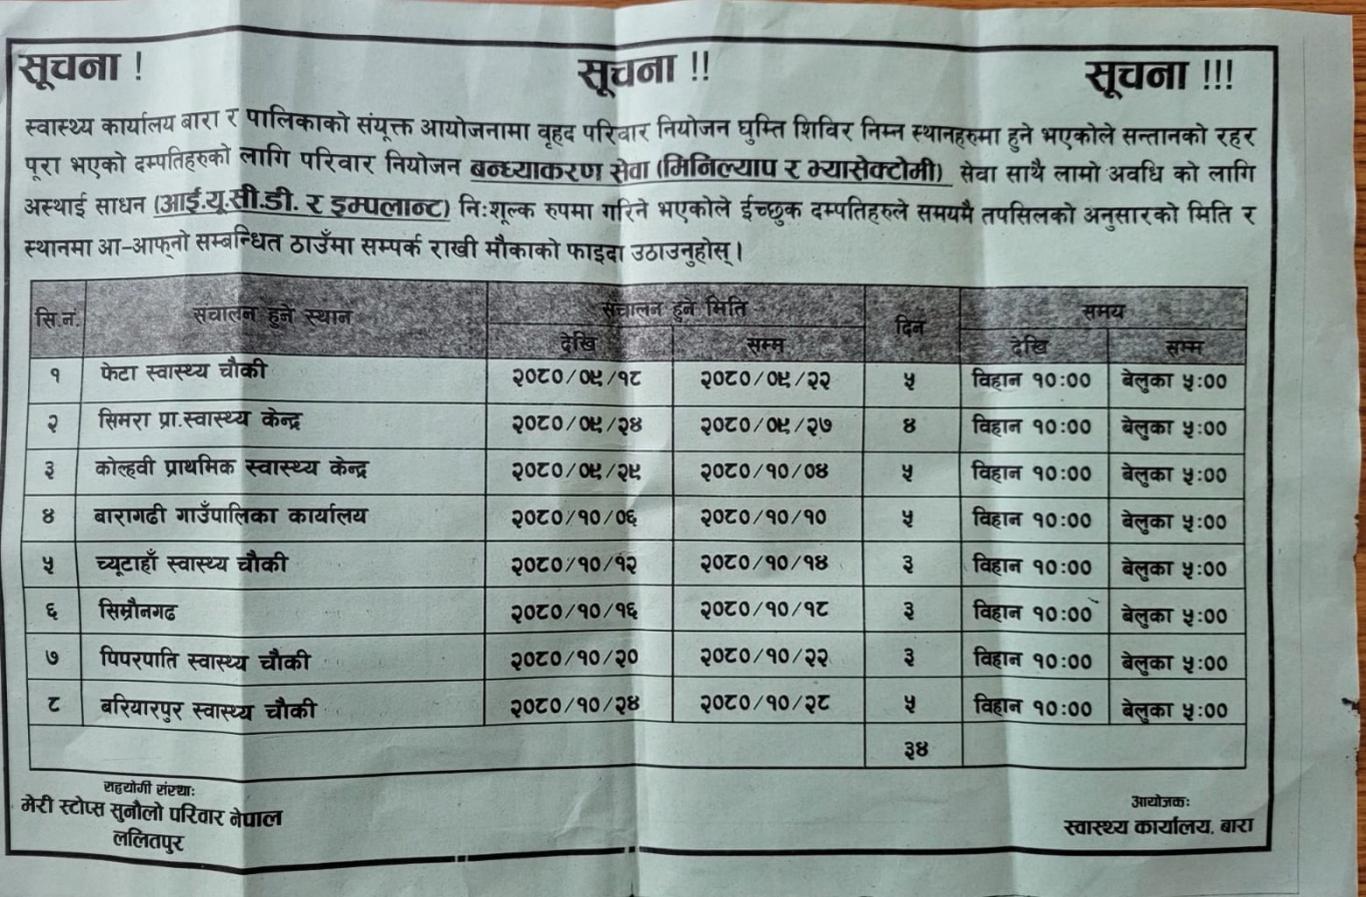 सूचना ! सूचना !! सूचना !!!
स्वास्थ्य कार्यालय बारा र पालिकाको संयूक्त आयोजनामा वृहद परिवार नियोजन घुम्ति शिविर निम्न स्थानहरुमा हुने भएकोले सन्तानको रहर
पूरा भएको दम्पतिहरुको लागि परिवार नियोजन बन्ध्याकरण सेवा (मिनिल्याप र भ्यासेक्टोमी) सेवा साथै लामो अवधि को लागि
अस्थाई साधन (आई.यू.सी.डी. र इम्पलान्ट) निःशूल्क रुपमा गरिने भएकोले ईच्छुक दम्पतिहरुले समयमै तपसिलको अनुसारको मिति र
स्थानमा आ-आफ्नो सम्बन्धित ठाउँमा सम्पर्क राखी मौकाको फाइदा उठाउनुहोस् ।
सि.नं. संचालन हुने स्थान संचालन हुने मिति दिन समय
देखि सम्म देखि सम्म
१ फेटा स्वास्थ्य चौकी २०८०/०९/१८ २०८०/०९/२२ ५ विहान १०:०० बेलुका ५:००
२ सिमरा प्रा.स्वास्थ्य केन्द्र २०८०/०९/२४ २०८०/०९/२७ ४ विहान १०:०० बेलुका ५:००
३ कोल्हवी प्राथमिक स्वास्थ्य केन्द्र २०८०/०९/२९ २०८०/१०/०४ ५ विहान १०:०० बेलुका ५:००
४ बारागढी गाउँपालिका कार्यालय २०८०/१०/०६ २०८०/१०/१० ५ विहान १०:०० बेलुका ५:००
५ च्यूटाहाँ स्वास्थ्य चौकी २०८०/१०/१२ २०८०/१०/१४ ३ विहान १०:०० बेलुका ५:००
६ सिम्रौनगढ २०८०/१०/१६ २०८०/१०/१८ ३ विहान १०:०० बेलुका ५:००
७ पिपरपाति स्वास्थ्य चौकी २०८०/१०/२० २०८०/१०/२२ ३ विहान १०:०० बेलुका ५:००
८ बरियारपुर स्वास्थ्य चौकी २०८०/१०/२४ २०८०/१०/२८ ५ विहान १०:०० बेलुका ५:००
३४
सहयोगी संस्थाः
मेरी स्टोप्स सुनौलो परिवार नेपाल
ललितपुर
आयोजकः
स्वास्थ्य कार्यालय, बारा